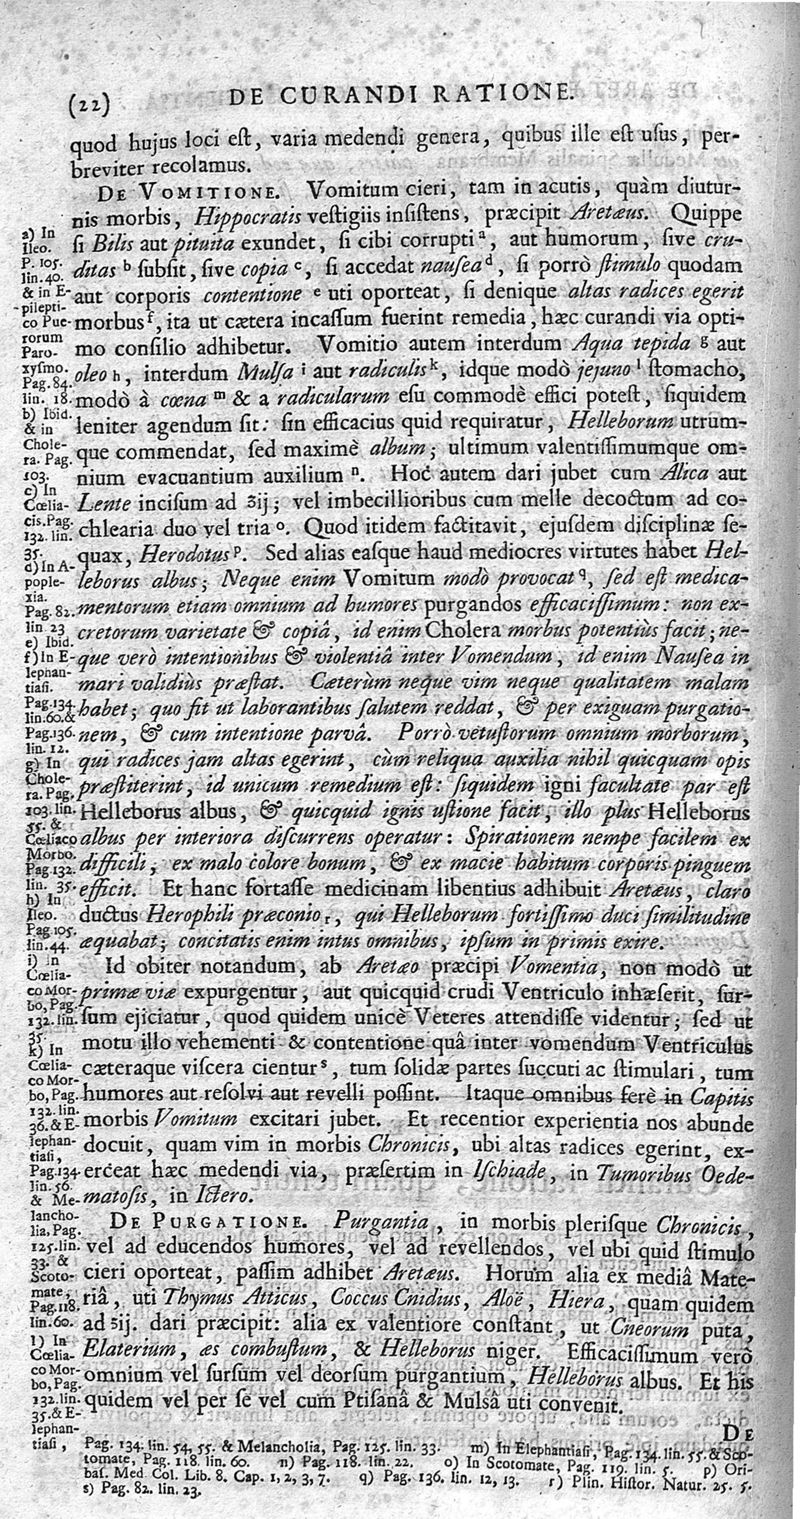 (22) DE CURANDI RATIONE.
quod hujus loci est, varia medendi genera, quibus ille est usus, per-
breviter recolamus.
DE VOMITIONE. Vomitum cieri, tam in acutis, quàm diutur-
nis morbis, Hippocratis vestigiis insistens, præcipit Aretæus. Quippe
si Bilis aut pituita exundet, si cibi corrupti a, aut humorum, sive cru-
ditas b subsit, sive copia c, si accedat nausea d, si porrò stimulo quodam
aut corporis contentione e uti oporteat, si denique altas radices egerit
morbus f, ita ut cætera incassum fuerint remedia, hæc curandi via opti-
mo consilio adhibetur. Vomitio autem interdum Aqua tepida g aut
oleo h, interdum Mulsa i aut radiculis k, idque modò jejuno l stomacho,
modò à cœna m & a radicularum esu commodè effici potest, siquidem
leniter agendum sit: sin efficacius quid requiratur, Helleborum utrum-
que commendat, sed maximè album; ultimum valentissimumque om-
nium evacuantium auxilium n. Hoc autem dari jubet cum Alica aut
Lente incisum ad ʒij; vel imbecillioribus cum melle decoctum ad co-
chlearia duo vel tria o. Quod itidem factitavit, ejusdem disciplinæ se-
quax, Herodotus p. Sed alias easque haud mediocres virtutes habet Hel-
leborus albus; Neque enim Vomitum modò provocat q, sed est medica-
mentorum etiam omnium ad humores purgandos efficacissimum: non ex-
cretorum varietate & copiâ, id enim Cholera morbus potentiùs facit; ne-
que verò intentionibus & violentiâ inter Vomendum, id enim Nausea in
mari validiùs præstat. Cæterùm neque vim neque qualitatem malam
habet; quo fit ut laborantibus salutem reddat, & per exiguam purgatio-
nem, & cum intentione parvâ. Porrò vetustorum omnium morborum,
qui radices jam altas egerint, cùm reliqua auxilia nihil quicquam opis
præstiterint, id unicum remedium est: siquidem igni facultate par est
Helleborus albus, & quicquid ignis ustione facit, illo plus Helleborus
albus per interiora discurrens operatur: Spirationem nempe facilem ex
difficili, ex malo colore bonum, & ex macie habitum corporis pinguem
efficit. Et hanc fortasse medicinam libentius adhibuit Aretæus, claro
ductus Herophili præconio r, qui Helleborum fortissimo duci similitudine
æquabat; concitatis enim intus omnibus, ipsum in primis exire.
Id obiter notandum, ab Aretæo præcipi Vomentia, non modò ut
primæ viæ expurgentur, aut quicquid crudi Ventriculo inhæserit, sur-
sum ejiciatur, quod quidem unicè Veteres attendisse videntur; sed ut
motu illo vehementi & contentione quâ inter vomendum Ventriculus
cæteraque viscera cientur s, tum solidæ partes succuti ac stimulari, tum
humores aut resolvi aut revelli possint. Itaque omnibus ferè in Capitis
morbis Vomitum excitari jubet. Et recentior experientia nos abunde
docuit, quam vim in morbis Chronicis, ubi altas radices egerint, ex-
erceat hæc medendi via, præsertim in Ischiade, in Tumoribus Oede-
matosis, in Ictero.
DE PURGATIONE. Purgantia, in morbis plerisque Chronicis,
vel ad educendos humores, vel ad revellendos, vel ubi quid stimulo
cieri oporteat, passim adhibet Aretæus. Horum alia ex mediâ Mate-
riâ, uti Thymus Atticus, Coccus Cnidius, Aloë, Hiera, quam quidem
ad ʒij. dari præcipit: alia ex valentiore constant, ut Cneorum puta,
Elaterium, æs combustum, & Helleborus niger. Efficacissimum verò
omnium vel sursum vel deorsum purgantium, Helleborus albus. Et his
quidem vel per se vel cum Ptisanâ & Mulsâ uti convenit.
DE
a) In
Ileo.
P. 105.
lin. 40.
& in E-
pilepti-
co Pue-
rorum
Paro-
xysmo.
Pag. 84.
lin. 18.
b) Ibid.
& in
Chole-
ra. Pag.
103.
c) In
Cœlia-
cis. Pag.
132. lin.
35.
d) In A-
pople-
xia.
Pag. 82.
lin. 23
e) Ibid.
f) In E-
lephan-
tiasi.
Pag. 134.
lin. 60. &
Pag. 136.
lin. 12.
g) In
Chole-
ra. Pag.
103. lin.
55. &
Cœliaco
Morbo.
Pag. 132.
lin. 35.
h) In
Ileo.
Pag. 105.
lin. 44.
i) In
Cœlia-
co Mor-
bo, Pag.
132. lin.
35.
k) In
Cœlia-
co Mor-
bo, Pag.
132. lin.
36. & E-
lephan-
tiasi,
Pag. 134
lin. 56.
& Me-
lancho-
lia, Pag.
125. lin.
33. &
Scoto-
mate,
Pag. 118.
lin. 60.
l) In
Cœlia-
co Mor-
bo, Pag.
132. lin.
35. & E-
lephan-
tiasi,
Pag. 134. lin. 54, 55. & Melancholia, Pag. 125. lin. 33. m) In Elephantiasi, Pag. 134. lin. 55. & Sco-
tomate, Pag. 118. lin. 60. n) Pag. 118. lin. 22. o) In Scotomate, Pag. 119. lin. 5. p) Ori-
bas. Med. Col. Lib. 8. Cap. 1, 2, 3, 7. q) Pag. 136. lin. 12, 13. r) Plin. Histor. Natur. 25. 5.
s) Pag. 82. lin. 23.